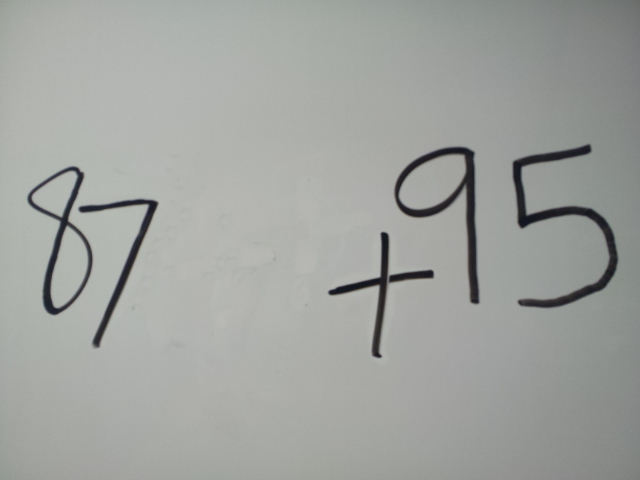 87 +95